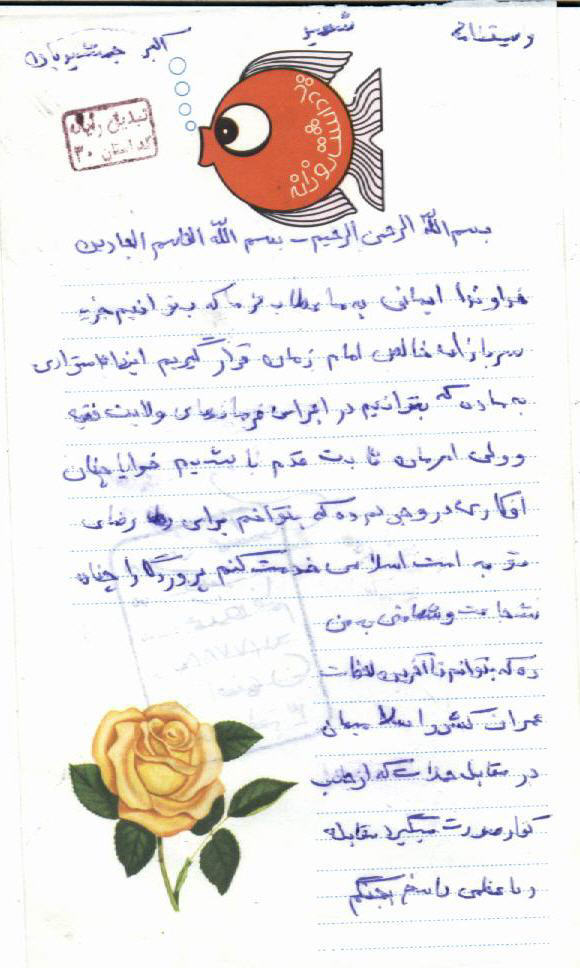 وصیتنامه شهید اکبر جمشیدیان
تبدیل رایانه
کد استان ۳۰
بسم الله الرحمن الرحیم - بسم الله القاسم الجبارین
خداوندا ایمانی به ما عطا بفرما که بتوانیم جزء
سربازان خالص امام زمان قرار گیریم استواری
به ما ده که بتوانیم در اجرای فرمانهای ولایت فقیه
و ولی امرمان ثابت قدم باشیم خدایا چنان
افکاری در وجودم ده که بتوانم برای رضای
تو به امت اسلامی خدمت کنم پروردگارا چنان
شجاعت و شهامتی به من
ده که بتوانم تا آخرین لحظات
عمرم از کشور اسلامیمان
در مقابل حملات که از جانب
کفار صورت میگیرد مقابله
و با عظمی راسخ بجنگم